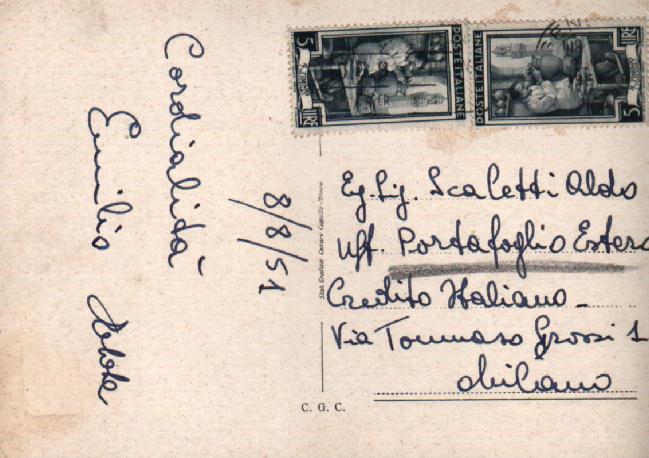 Cordialità
Emilio
8/8/51
POSTE ITALIANE
5
LIRE
POSTE ITALIANE
5
LIRE
Eg. Sig. Scaletti Aldo
Uff. Portafoglio Estero
Credito Italiano -
Via Tommaso Grossi 1
Milano
C. G. C.